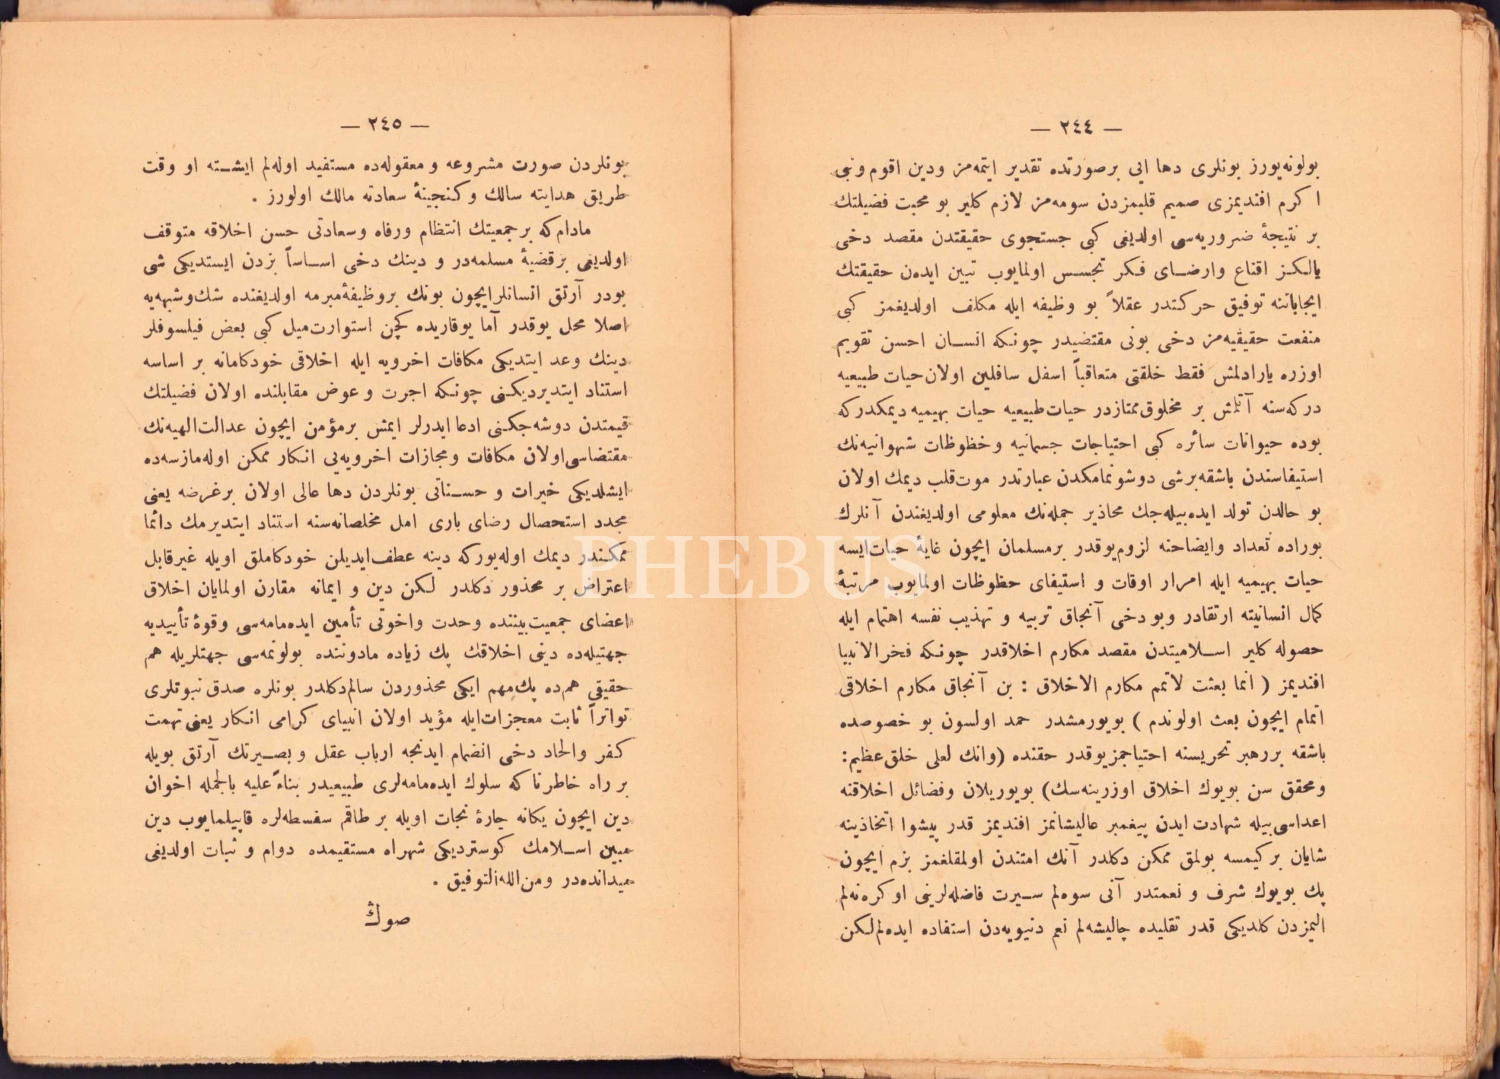 — ٢٤٤ —
بولونه‌يورز بونلرى دها ايى برصورتده تقدير ايتمه‌مز ودين اقوم ونبى
اكرم افنديمزى صميم قلبمزدن سومه‌مز لازم كلير بو محبت فضيلتك
بر نتيجۀ ضروريه‌سى اولديغى كبى جستجوى حقيقتدن مقصد دخى
يالكز اقناع وارضاى فكر تجسس اولمايوب تبين ايده‌ن حقيقتك
ايجاباتنه توفيق حركتدر عقلاً بو وظيفه ايله مكلف اولديغمز كبى
منفعت حقيقيه‌مز دخى بونى مقتضيدر چونكه انسان احسن تقويم
اوزره يارادلمش فقط خلقتى متعاقباً اسفل سافلين اولان حيات طبيعيه
دركه‌سنه آتلمش بر مخلوق ممتازدر حيات طبيعيه حيات بهيميه ديمكدركه
بوده حيوانات سائره كبى احتياجات جسمانيه وخظوظات شهوانيه‌نك
استيفاسندن باشقه برشى دوشونمامكدن عبارتدر موت قلب ديمك اولان
بو حالدن تولد ايده‌بيله‌جك محاذير جمله‌نك معلومى اولديغندن آنلرك
بوراده تعداد وايضاحنه لزوم يوقدر برمسلمان ايچون غايۀ حيات ايسه
حيات بهيميه ايله امرار اوقات و استيفاى حظوظات اولمايوب مرتبۀ
كمال انسانيته ارتقادر وبو دخى آنجاق تربيه و تهذيب نفسه اهتمام ايله
حصوله كلير اسلاميتدن مقصد مكارم اخلاقدر چونكه فخر الانبيا
افنديمز ( انما بعثت لاتمم مكارم الاخلاق : بن آنجاق مكارم اخلاقى
اتمام ايچون بعث اولوندم ) بويورمشدر حمد اولسون بو خصوصده
باشقه بررهبر تحريسنه احتياجمز يوقدر حقنده (وانك لعلى خلق عظيم:
ومحقق سن بويوك اخلاق اوزرينه‌سك) بويوريلان وفضائل اخلاقنه
اعداسى بيله شهادت ايدن پيغمبر عاليشانمز افنديمز قدر پيشوا اتخاذينه
شايان بركيمسه بولمق ممكن دكلدر آنك امتندن اولمقلغمز بزم ايچون
پك بويوك شرف و نعمتدر آنى سوه‌لم سيرت فاضله‌لرينى اوكره‌نه‌لم
المزدن كلديكى قدر تقليده چاليشه‌لم نعم دنيويه‌دن استفاده ايده‌لم لكن
— ٢٤٥ —
بونلردن صورت مشروعه و معقوله‌ده مستفيد اوله‌لم ايشته او وقت
طريق هدايته سالك و كنجينۀ سعادته مالك اولورز .
مادام كه بر جمعيتك انتظام ورفاه وسعادتى حسن اخلاقه متوقف
اولديغى برقضيۀ مسلمه‌در و دينك دخى اساساً بزدن ايستديكى شى
بودر آرتق انسانلر ايچون بونك بروظيفۀ مبرمه اولديغنده شك وشبهه‌يه
اصلا محل يوقدر آما يوقاريده كچن استوارت ميل كبى بعض فيلسوفلر
دينك وعد ايتديكى مكافات اخرويه ايله اخلاقى خودكامانه بر اساسه
استناد ايتديرديكنى چونكه اجرت و عوض مقابلنده اولان فضيلتك
قيمتدن دوشه‌جكنى ادعا ايدرلر ايمش برمؤمن ايچون عدالت الهيه‌نك
مقتضاسى اولان مكافات ومجازات اخرويه‌يى انكار ممكن اوله‌مازسه‌ده
ايشلديكى خيرات و حسناتى بونلردن دها عالى اولان برغرضه يعنى
مجدد استحصال رضاى بارى امل مخلصانه‌سنه استناد ايتديرمك دائما
ممكندر ديمك اوله‌يوركه دينه عطف ايديلن خودكاملق اويله غير قابل
اعتراض بر محذور دكلدر لكن دين و ايمانه مقارن اولمايان اخلاق
اعضاى جمعيت بيننده وحدت واخوتى تأمين ايده‌مامه‌سى وقوۀ تأييديه
جهتيله‌ده دينى اخلاقك پك زياده مادوننده بولونمه‌سى جهتلريله هم
حقيقى هم‌ده پك مهم ايكى محذوردن سالم دكلدر بونلره صدق نبوتلرى
تواتراً ثابت معجزات ايله مؤيد اولان انبياى كرامى انكار يعنى تهمت
كفر والحاد دخى انضمام ايدنجه ارباب عقل و بصيرتك آرتق بويله
بر راه خاطرناكه سلوك ايده‌مامه‌لرى طبيعيدر بناءً عليه بالجمله اخوان
دين ايچون يكانه چارۀ نجات اويله برطاقم سفسطه‌لره قاپيلمايوب دين
مبين اسلامك كوسترديكى شهراه مستقيمده دوام و ثبات اولديغى
ميدانده‌در ومن الله التوفيق .
صوڭ
PHEBUS